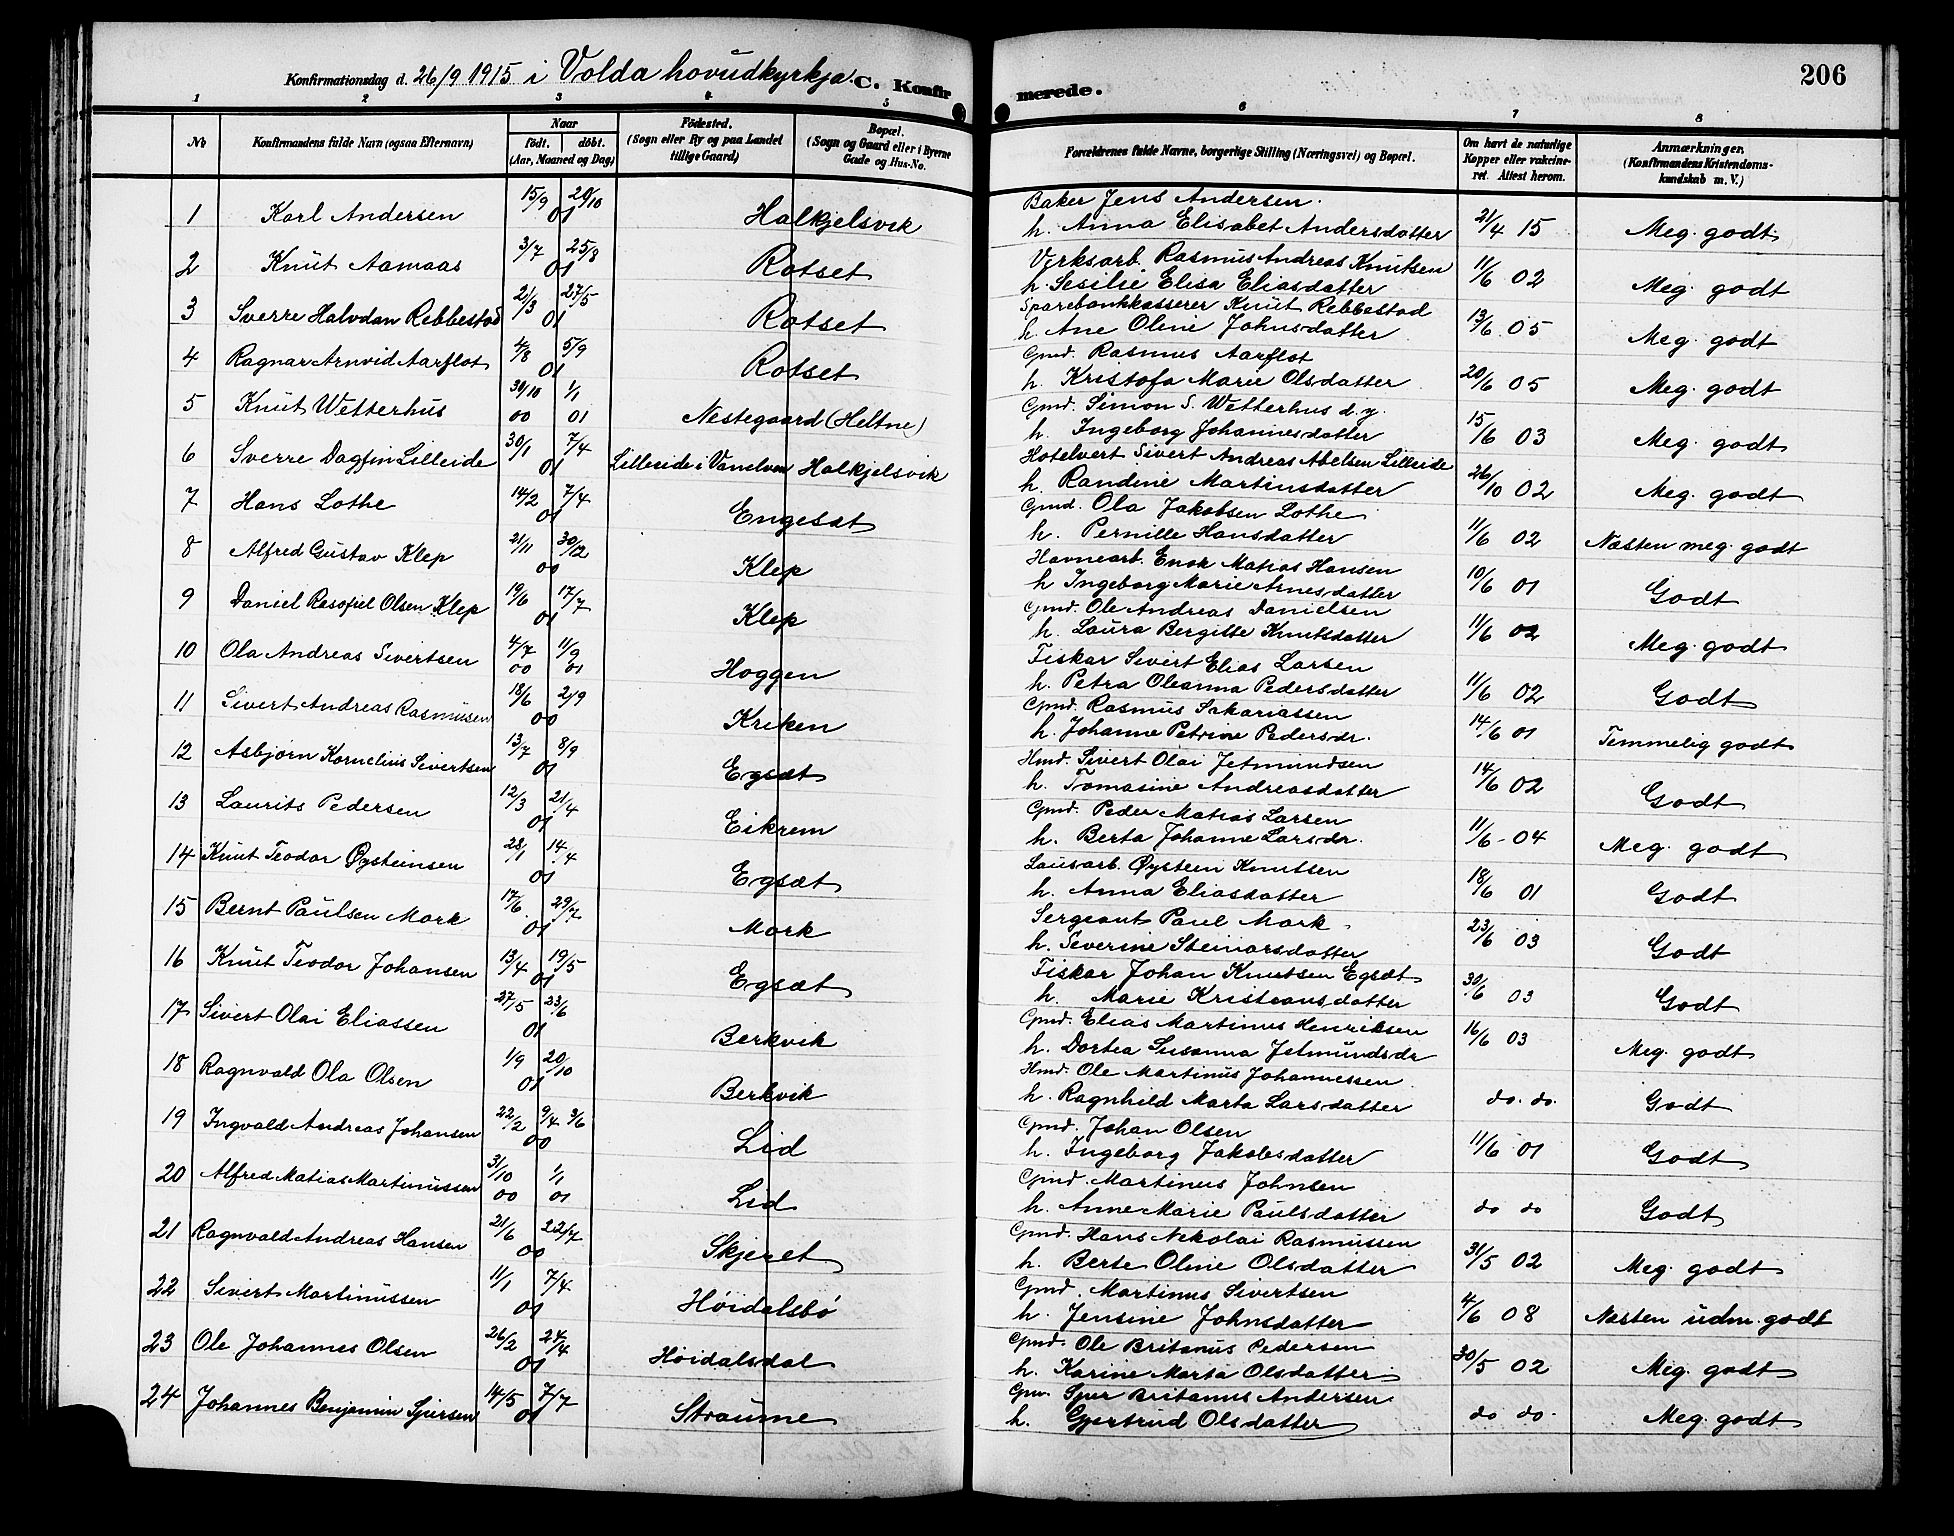 Konfirmationsdag d. 26/9 1915 i Volda hovudkyrkja. C. Konfir merede. 206
1 2 3 4 5 6 7 8
No Konfirmandens fulde Navn (ogsaa Efternavn) Naar født. døbt. (Aar, Maaned og Dag) Fødested. (Sogn eller By og paa Landet tillige Gaard) Bopæl. (Sogn og Gaard eller i Byerne Gade og Hus-No. Forældrenes fulde Navne, borgerlige Stilling (Næringsvei) og Bopæl. Om havt de naturlige Kopper eller vakcineret. Attest herom. Anmærkninger. (Konfirmandens Kristendomskundskab m. V.)
1 Karl Andersen 15/9 20/10 01 Halkjelsvik Baker Jens Andersen.
h. Anna Elisabet Andersdatter 21/4 15 Meg. godt
2 Knut Aamaas 3/7 25/8 01 Rotset Verksarb. Rasmus Andreas Knutsen
h. Sesilie Elisa Eliasdatter 11/6 02 Meg. godt
3 Sverre Halvdan Rebbestad 21/3 27/5 01 Rotset Sparebankkasserer Knut Rebbestad
h. Ane Oline Johnsdatter 13/6 05 Meg. godt
4 Ragnar Arnvid Aarflot 4/8 5/9 01 Rotset Gmd. Rasmus Aarflot
h. Kristofa Marie Olsdatter 20/6 05 Meg. godt
5 Knut Wetterhus 30/10 00 1/1 01 Nestegaard (Heltne) Gmd. Simon S. Wetterhus d.y.
h. Ingeborg Johannesdatter 15/6 03 Meg. godt
6 Sverre Dagfin Lilleide 30/1 7/4 01 Lilleide i Vanelven Halkjelsvik Hotelvert Sivert Andreas Abelsen Lilleide
h. Randine Martinsdatter 26/10 02 Meg. godt
7 Hans Lothe 14/2 7/4 01 Engeset Gmd. Ola Jakobsen Lothe
h. Pernille Hansdatter 11/6 02 Næsten meg. godt
8 Alfred Gustav Klep 21/11 30/12 00 Klep Havnearb. Enok Matias Hansen
h. Ingeborg Marie Arnesdatter 10/6 01 Godt
9 Daniel Rasofiel Olsen Klep 19/6 17/7 01 Klep Gmd. Ole Andreas Danielsen
h. Laura Bergitte Knutsdatter 11/6 02 Meg. godt
10 Ola Andreas Sivertsen 4/7 00 1/9 01 Hoggen Fiskar Sivert Elias Larsen
h. Petra Oleanna Pedersdatter 11/6 02 Godt
11 Sivert Andreas Rasmusen 18/6 2/9 00 Kreken Gmd. Rasmus Sakariassen
h. Johanne Petrine Pedersdr. 14/6 01 Temmelig godt
12 Asbjørn Kornelius Sivertsen 13/7 8/9 01 Egset Hmd. Sivert Olai Jetmundsen
h. Tomasine Andreasdatter 14/6 02 Godt
13 Laurits Pedersen 12/3 21/4 01 Eikrem Gmd. Peder Matias Larsen
h. Berta Johanne Larsdr. 11/6 04 Meg. godt
14 Knut Teodor Øysteinsen 28/1 14/4 01 Egset Lausarb. Øystein Knutsen
h. Anna Eliasdatter 18/6 01 Godt
15 Bernt Paulsen Mork 17/6 29/7 01 Mork Sergeant Paul Mork
h. Severine Steinarsdatter 23/6 03 Godt
16 Knut Teodor Johansen 13/4 19/5 01 Egset Fiskar Johan Knutsen Egset
h. Marie Kristiansdatter 30/6 03 Godt
17 Sivert Olai Eliassen 27/5 23/6 01 Berkvik Gmd. Elias Martinus Henriksen
h. Dortea Susanna Jetmundsdr 16/6 03 Meg. godt
18 Ragnvald Ola Olsen 1/9 20/10 01 Berkvik Hmd. Ole Martinus Johannessen
h. Ragnhild Marta Larsdatter do. do. Godt
19 Ingvald Andreas Johansen 22/2 9/4 3/6 00 Lid Gmd. Johan Olsen
h. Ingeborg Jakobsdatter 11/6 01 Godt
20 Alfred Matias Martinussen 31/10 00 1/1 01 Lid Gmd. Martinus Johnsen
h. Anne Marie Paulsdatter do do Godt
21 Ragnvald Andreas Hansen 21/6 22/7 00 Skjeret Gmd. Hans Nekolai Rasmussen
h. Berte Oline Olsdatter 31/5 02 Meg. godt
22 Sivert Martinussen 11/1 7/4 01 Høidalsbø Gmd. Martinus Sivertsen
h. Jensine Johnsdatter 4/6 08 Næsten udm. godt
23 Ole Johannes Olsen 26/2 24/4 01 Høidalsdal Gmd. Ole Britanus Pedersen
h. Karine Marta Olsdatter 30/5 02 Meg. godt
24 Johannes Benjamin Spersen 14/5 7/7 01 Straume Gm. Sper Britanus Andersen
h. Gjertrud Olsdatter do do Meg. godt